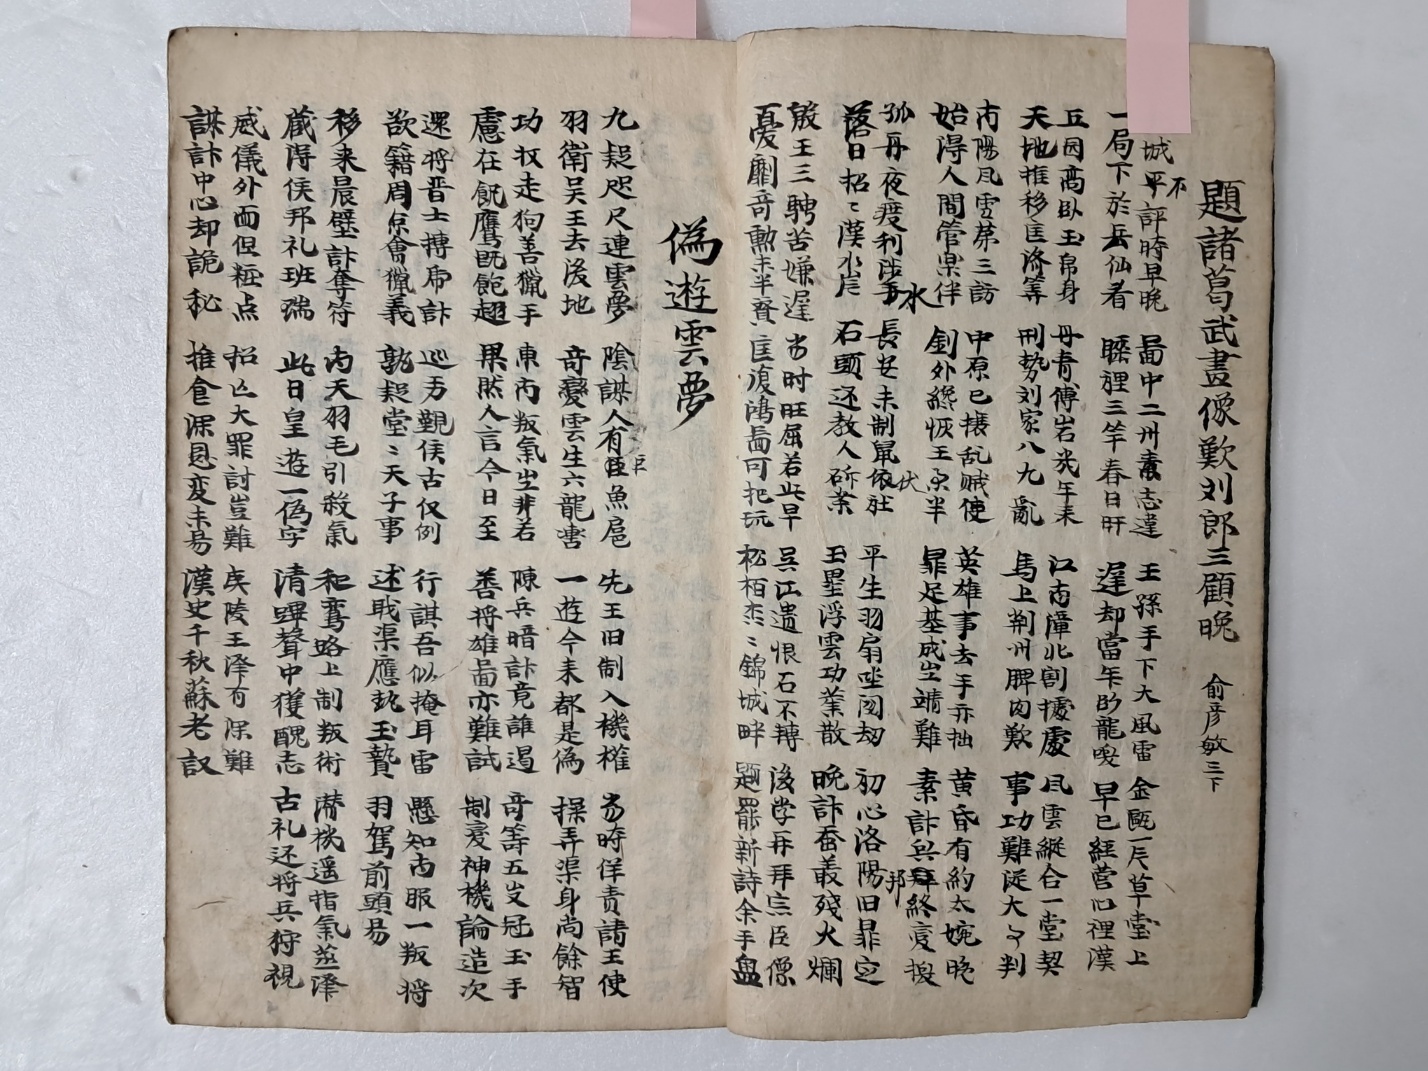 題諸葛武畫像歎刘郎三顧晩 俞彦敏三下
城平不評時早晩 啚中二州素志違 王孫手下大風雷 金甌一尺草堂上
一局下於岳仙看 睽裡三竿春日旰 遅却當年卧龍喚 早已經营心裡漢
丘园高卧玉帛身 丹青傅岩幾年来 江南漳北割據處 风雲縱合一堂契
天地推移匡济筭 刑勢刘家八九亂 馬上荊州脾肉歎 事功難從大事判
南陽风雪第三訪 中原已攘乱贼使 英雄事去手亦拙 黄昏有約太婉晩
始得人間管楽伴 釗外纔恢王京半 鼎足基成岂靖難 素計與邦終変援
孤舟夜渡利涉水 長安未制鼠依社 平生羽扇坐闼劫 初心洛陽旧鼎定
落日招〻漢水岸 石頭还教人斫案 玉壘浮雲功業散 晩計蚕叢殘火爛
殷王三聘苦嫌遅 当时旺屈若此早 吴江遗恨石不轉 後学再拜宗臣像
憂劘奇勲未半賛 匡復鴻啚可把玩 松栢杰〻錦城畔 題罷新詩余手盥
偽遊雲夢
九疑咫尺連雲夢 陰謀人有臣魚扈 先王旧制入機權 当时佯責諸王使
羽衛吴王去後地 奇變雲生六龍轡 一遊今来都是偽 操弄渠身尚餘智
功收走狗善獵手 東南叛氣岂非若 陳兵暗計竟誰遏 奇等五岁冠玉手
慮在飢鷹既飽翅 果然人言今日至 善将雄啚亦難試 制変神機論造次
還将晋士搏乕計 巡方觀侯古仅例 行諆吾似掩耳雷 懸知南服一叛将
欲籍周京會獵義 孰疑堂〻天子事 述戝渠應執玉贄 羽駕前頭易
移来晨壁計奪符 南天羽毛引殺氣 和鸞路上制叛術 潜機遥指氣蒸澤
蔵得侯邦礼班瑞 此日皇遊一偽字 清蹕聲中獲醜志 古礼还将兵狩視
威儀外面但粧点 招亡大罪討豈難 夷陵王澤有深難
謀計中心却詭秘 推食深恩変未易 漢史千秋蘇老訍